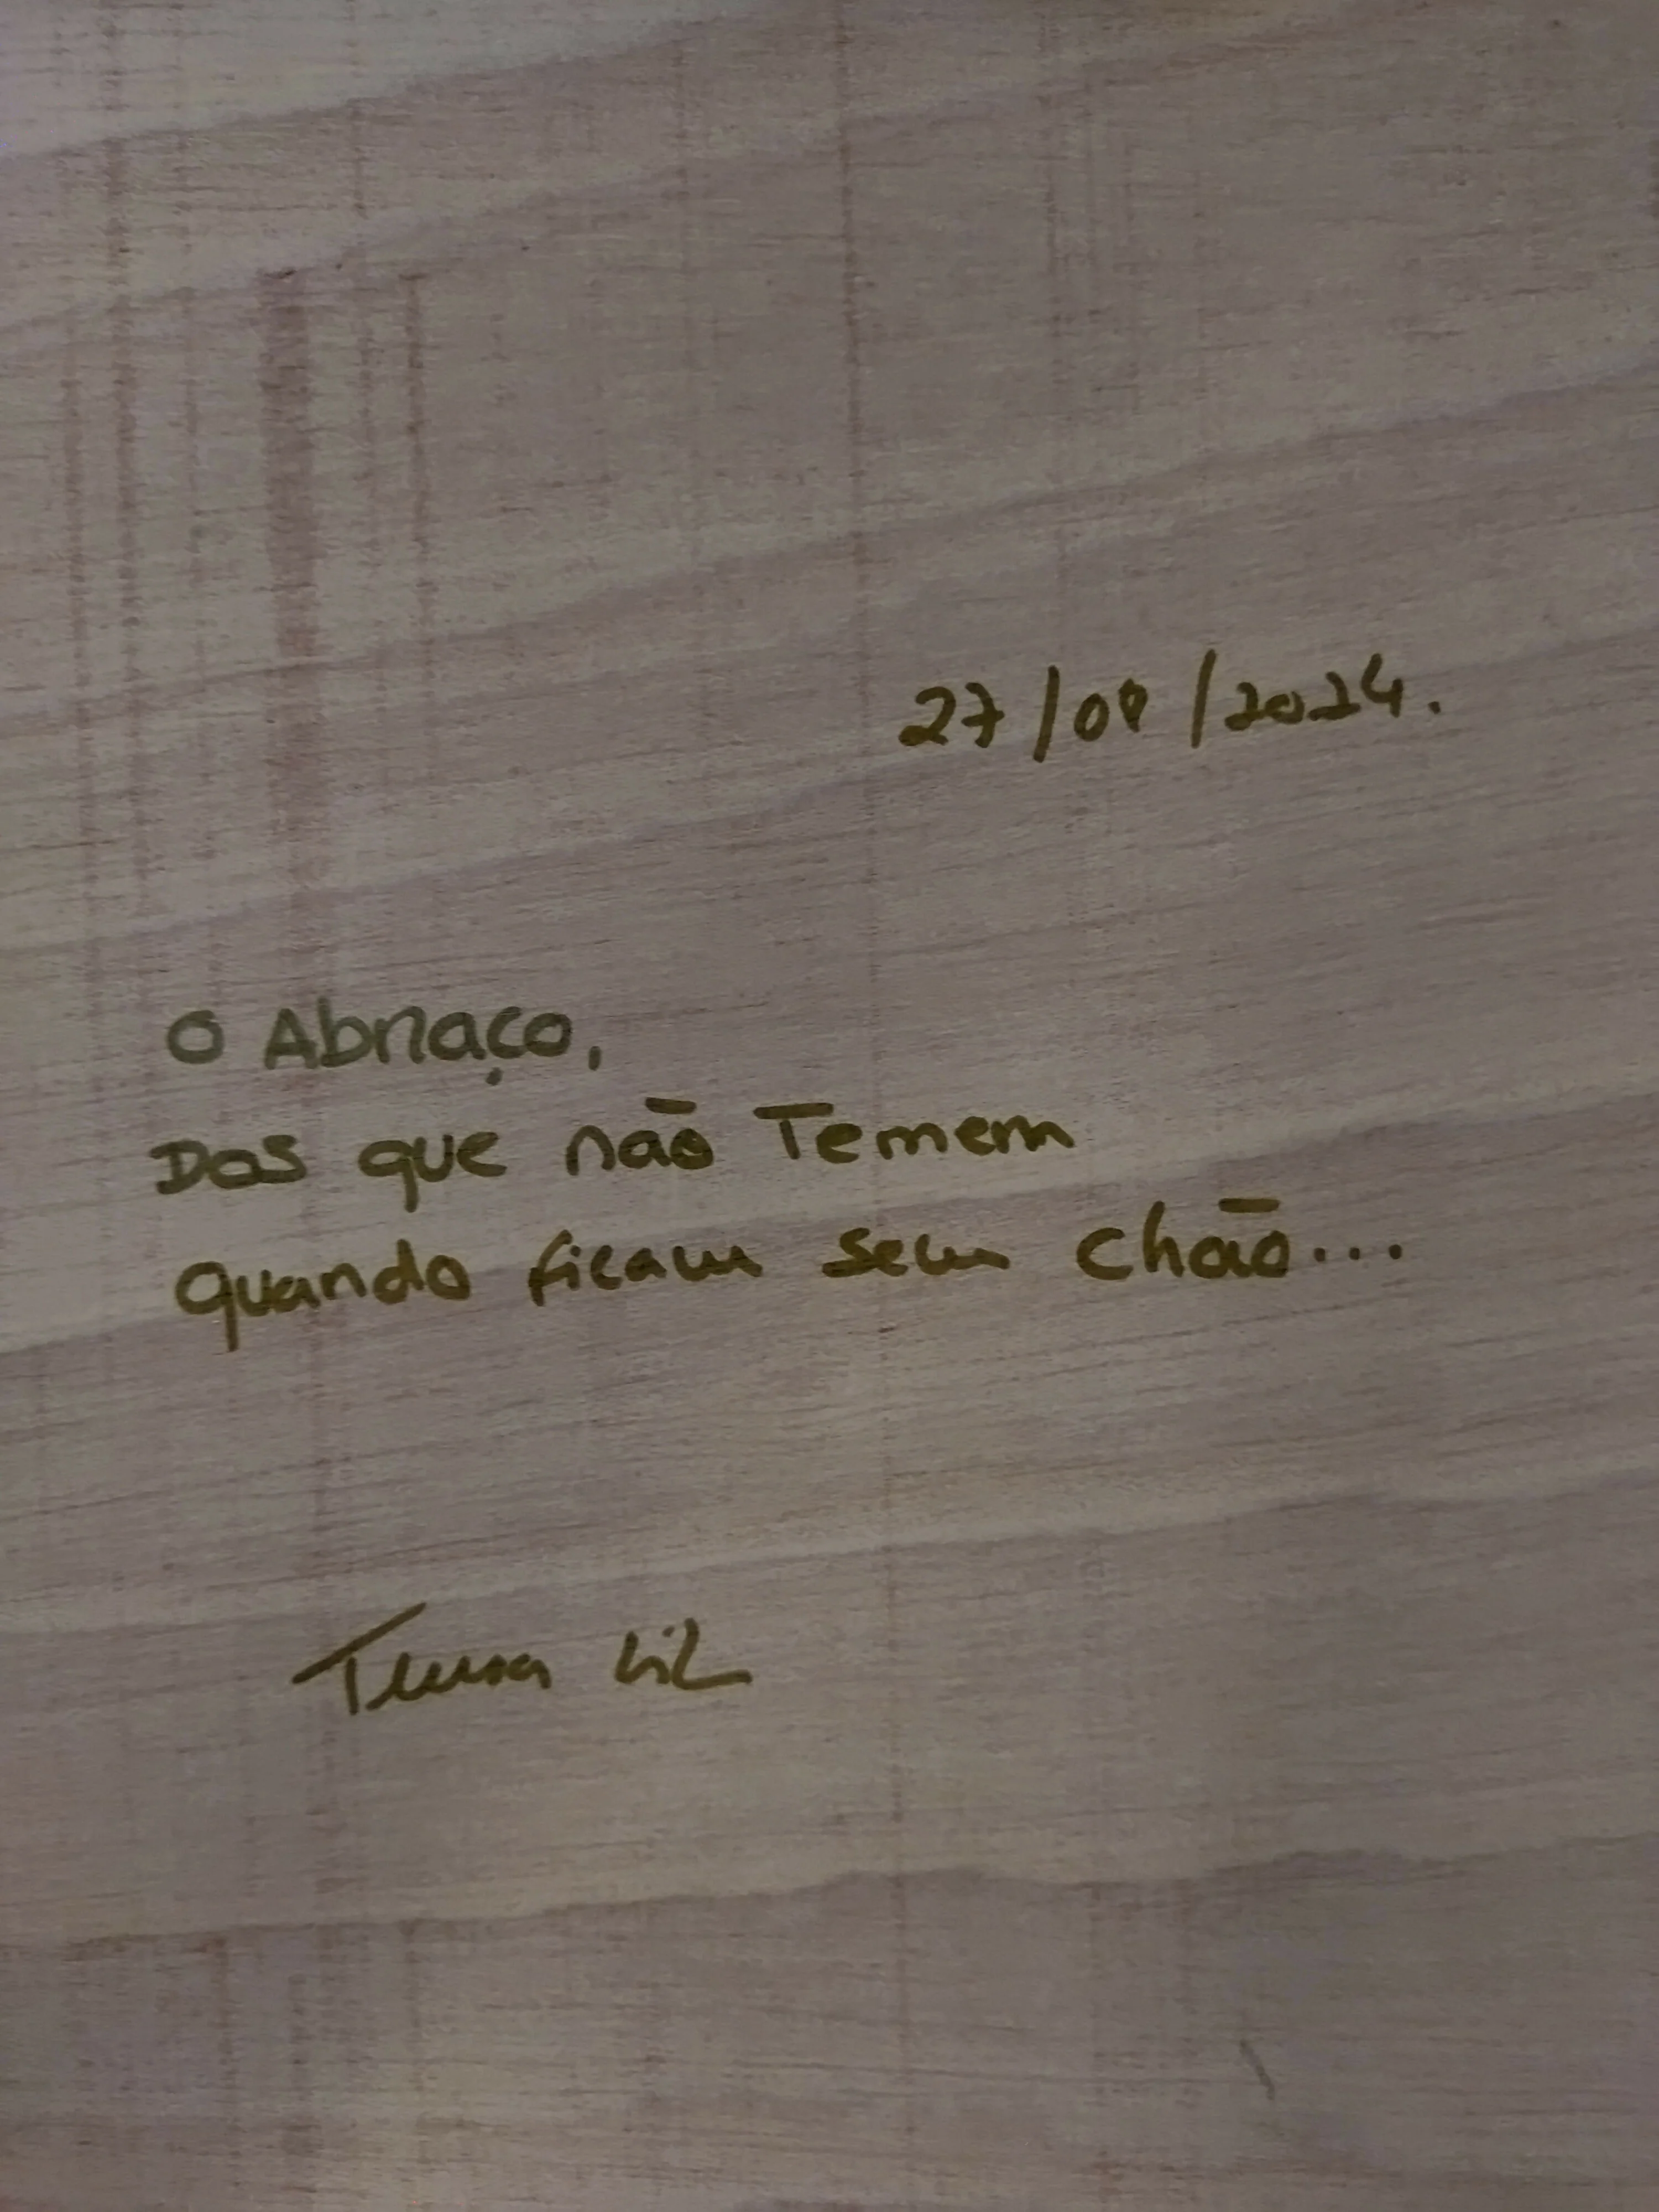 27/09/2024.
O Abraço,
Dos que não Temem
quando ficam sem chão...
Teresa Gil